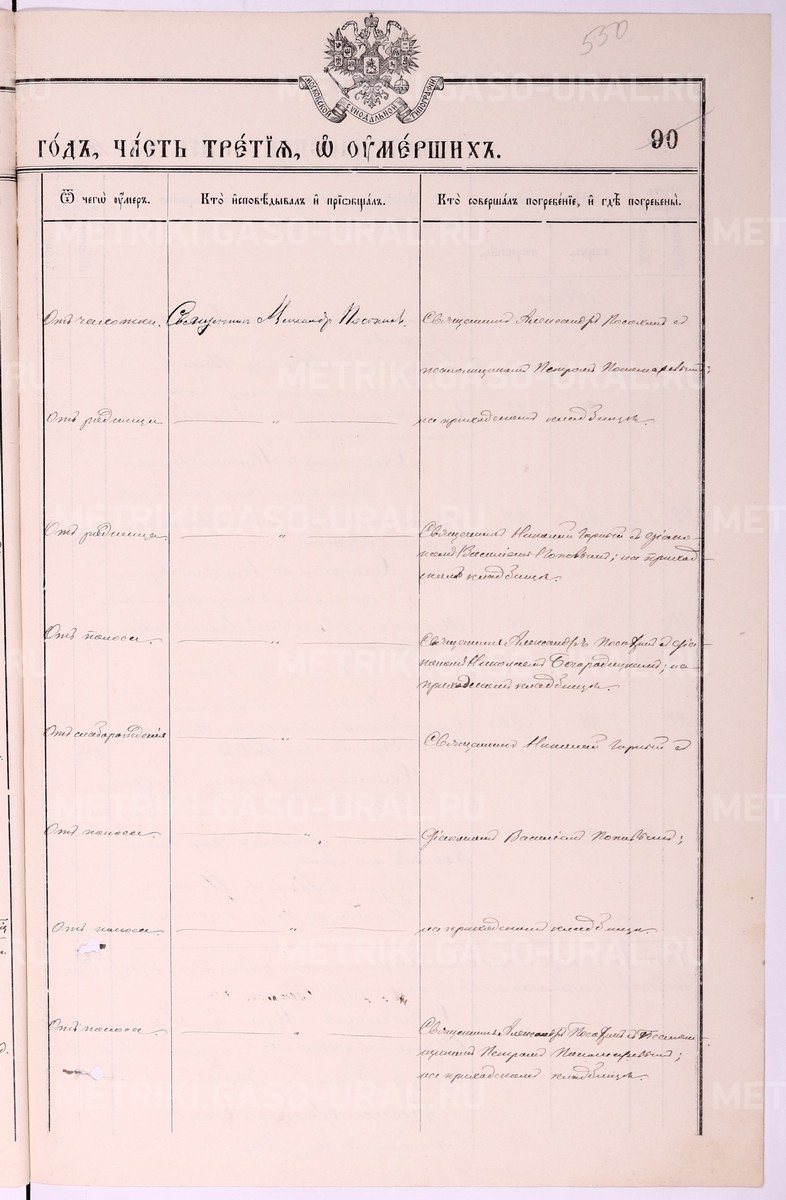 550
МОСКОВСКОЙ СѴНОДАЛЬНОЙ ТИПОГРАФІИ
го́дъ, ча́сть тре́тїѧ, ѡ҆ оу҆ме́ршихъ.
90
Ѿ чегѡ̀ оу҆́меръ.
Кто̀ и҆сповѣ́дывалъ и҆ прїѡбща́лъ.
Кто̀ соверша́лъ погребе́нїе, и҆ гдѣ̀ погребены̀.
Отъ чахотки. Священникъ Александръ
Священникъ Александръ и
псаломщикомъ Петромъ Пономаревымъ;
Отъ родимца — „ — на приходскомъ кладбищѣ.
Отъ родимца — „ — Священникъ Николай Горный и діако-
номъ Василіемъ Поповымъ; на приход-
скомъ кладбищѣ.
Отъ поноса. — „ — Священникъ Александръ и діа-
кономъ Николаемъ Богородицкимъ; на
приходскомъ кладбищѣ.
Отъ слаборожденія — „ — Священникъ Николай Горный и
Отъ поноса. — „ — діакономъ Василіемъ Поповымъ;
Отъ поноса — „ — на приходскомъ кладбищѣ.
Отъ поноса. — „ — Священникъ Александръ и псалом-
щикомъ Петромъ Пономаревымъ;
на приходскомъ кладбищѣ.
METRIKI.GASO-URAL.RU